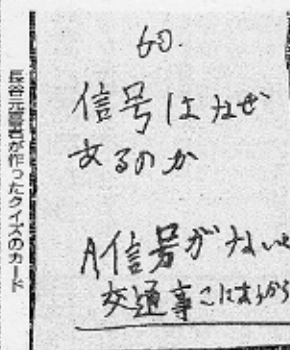 60.
信号はなぜ
あるのか
A信号がないと
交通事こにあうから
長谷元喜君が作ったクイズのカード